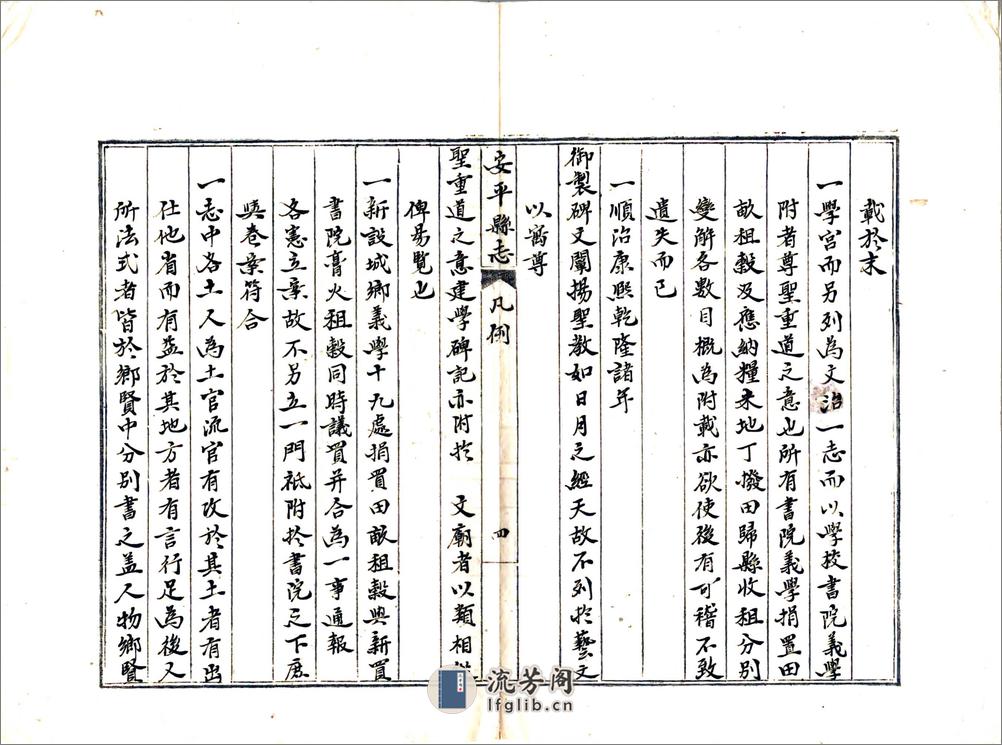 載於末
一學宮而另列為文治一志而以學校書院義學
附者尊聖重道之意也所有書院義學捐置田
畝租穀及應納糧米地丁撥田歸縣收租分別
變解各數目概為附載亦欲使後有可稽不致
遺失而已
一順治康熙乾隆諸年
御製碑文闡揚聖教如日月之經天故不列於藝文
以崇尊
安平縣志 凡例 四
聖重道之意建學碑記亦附於 文廟者以類相
俾易覽也
一新設城鄉義學十九處捐買田畝租穀與新買
書院膏火租穀同時議買并合為一事通報
各憲立案故不另立一門祇附於書院之下庶
與卷案符合
一志中各土人為土官流官有政於其土者有出
仕他省而有益於其地方者有言行足為後人
所法式者皆於鄉賢中分別書之蓋人物鄉賢
流芳阁
lfglib.cn